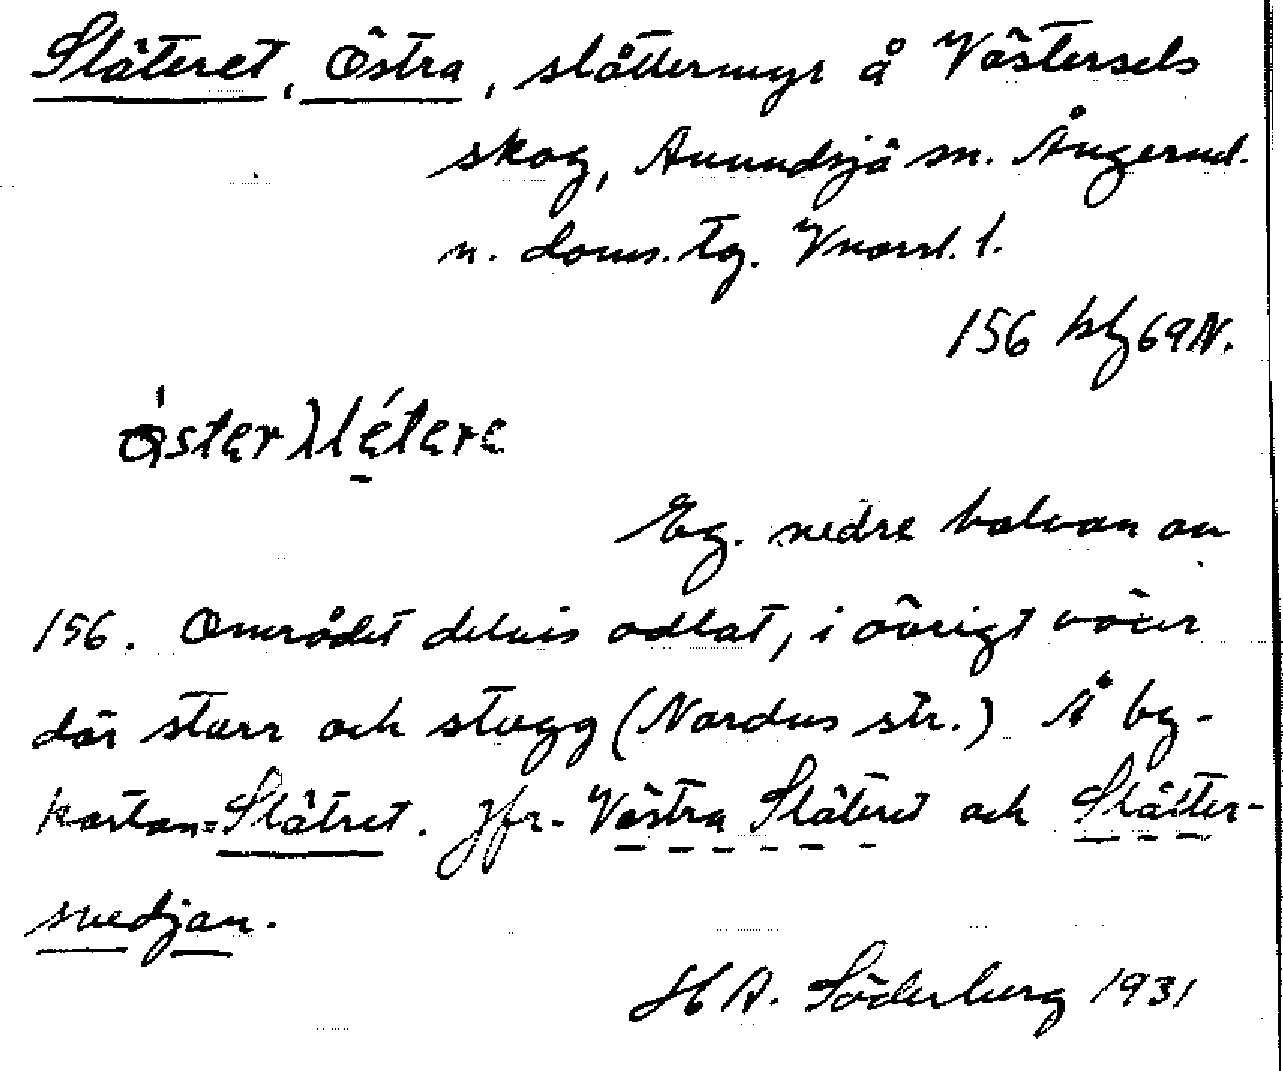 Slåteret, Östra, slåttermyr å Västersels
skog, Anundsjö sn. Ångerml.
n. doms. tg. Vnorrl. l.
156 kbg 69N.
Eg. nedre halvan av
156. Området delvis odlat, i övrigt växer
där starr och stagg (Nardus str.) Å by-
kartan=Slåtret. Jfr. Västra Slåteret och Slåtter-
svedjan.
H A. Söderberg 1931